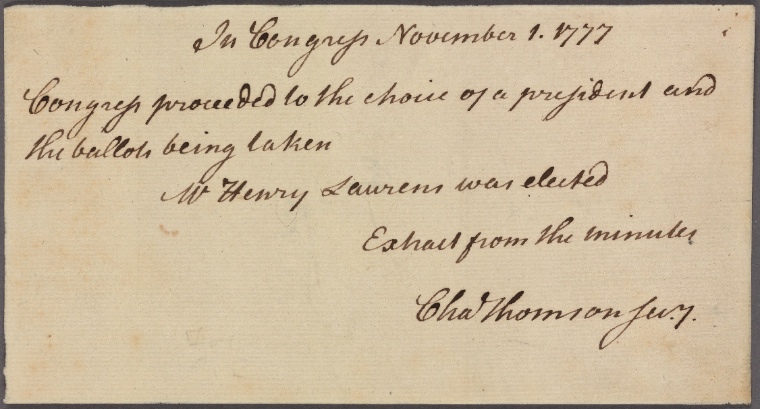 In Congress November 1. 1777
Congress proceeded to the choice of a president and
the ballots being taken
Mr Henry Laurens was elected
Extract from the minutes
Chas Thomson secy.